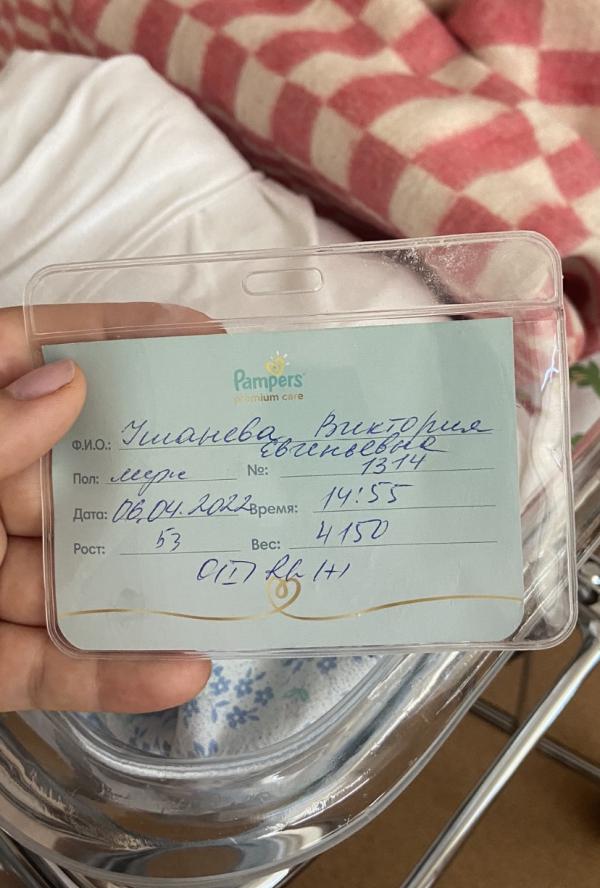 Pampers
premium care
Ф.И.О.: Виктория
Евгеньевна
Пол: муж №: 1314
Дата: 06.04.2022 Время: 14:55
Рост: 53 Вес: 4150
O(I) Rh (+)